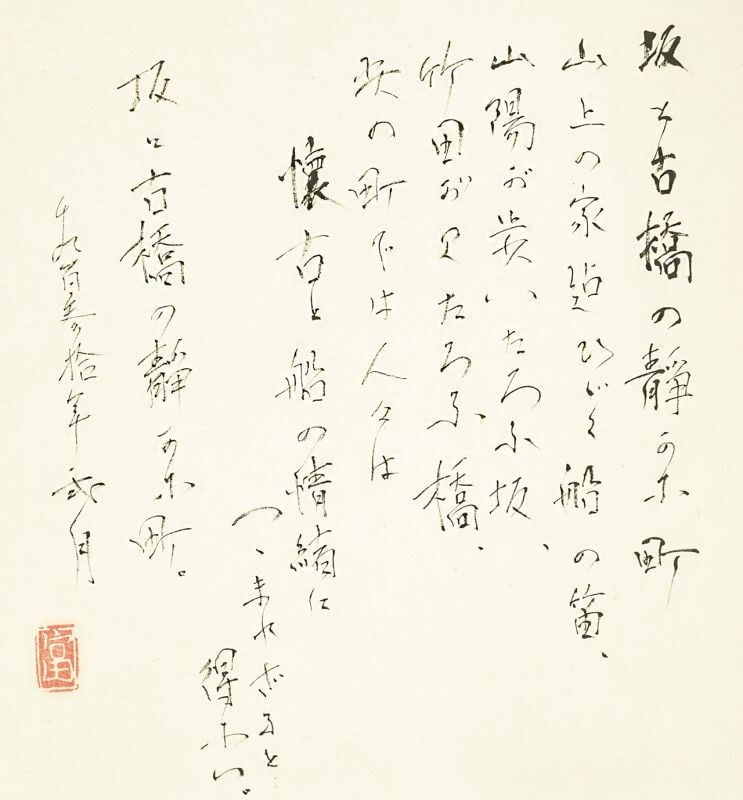 坂と古橋の靜かな町
山上の家迄ひびく船の笛、
山陽が歩いたろふ坂、
竹田が見たろふ橋、
の町では人々は
懷古と船の情緒に
つゝまれざるを
得ない。
坂に古橋の靜かな町。
千九百参拾年弐月